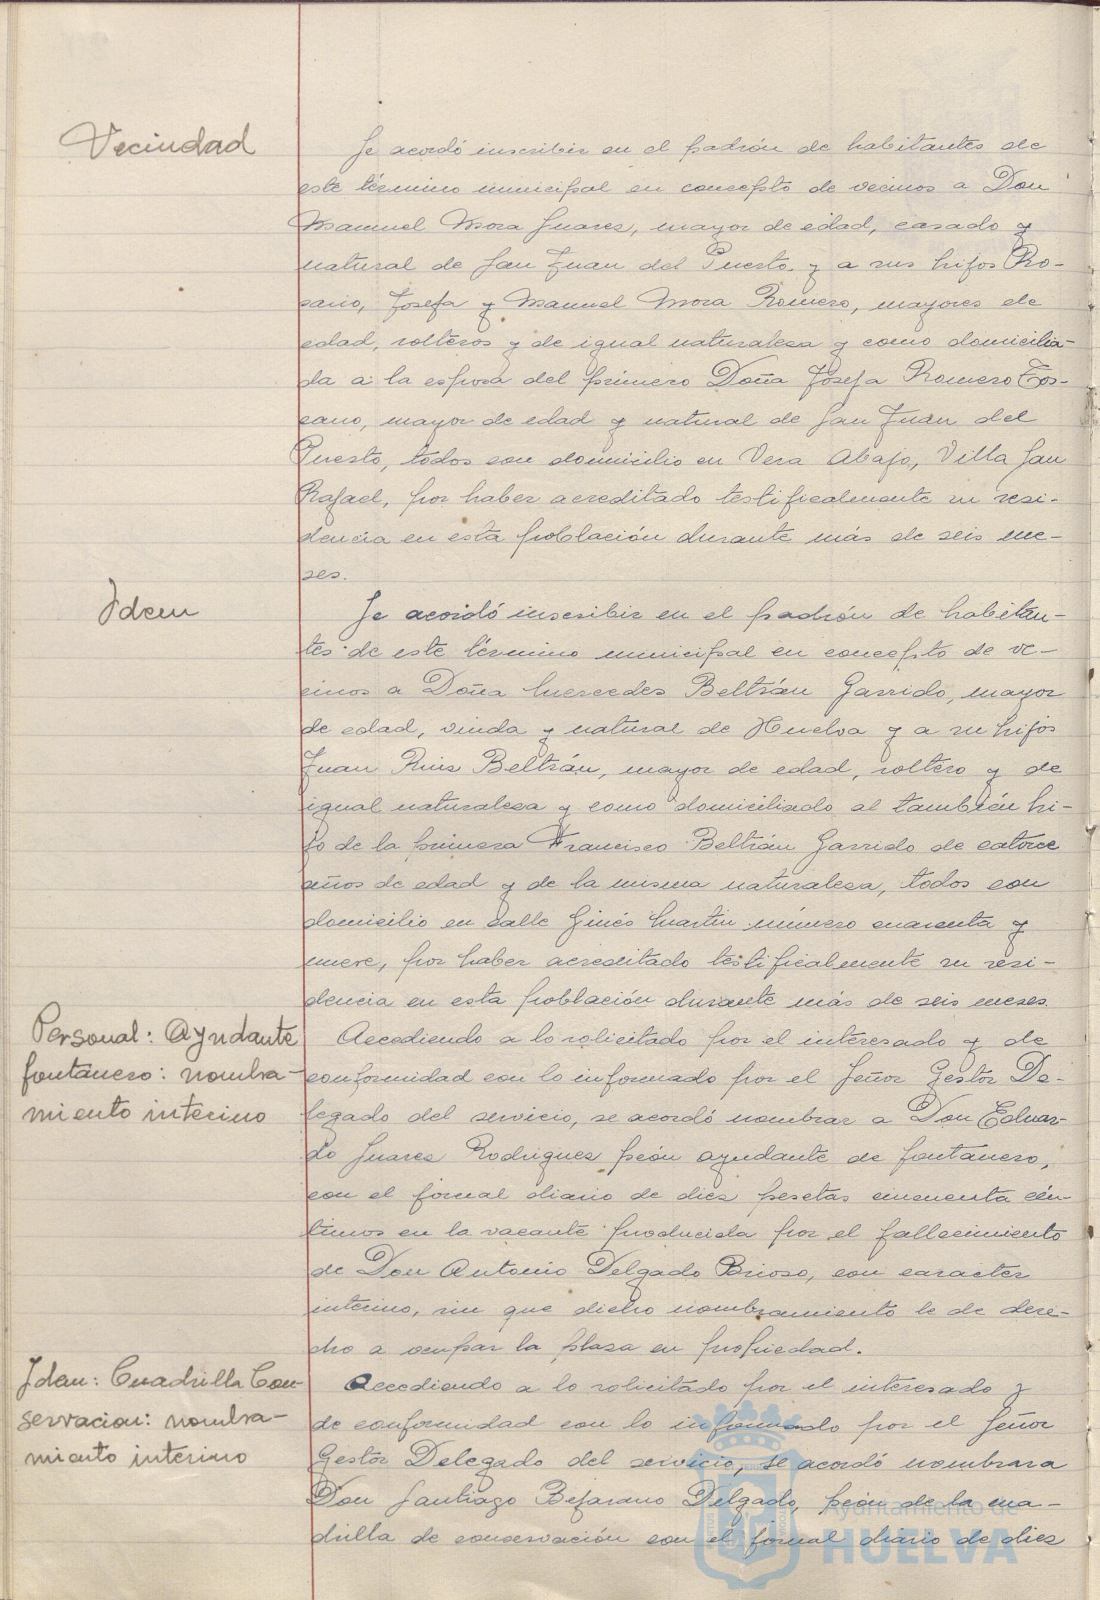 Vecindad
Se acordó inscribir en el padrón de habitantes de
este término municipal en concepto de vecinos a Don
Manuel Mora Juares, mayor de edad, casado y
natural de San Juan del Puerto y a sus hijos Ro-
sario, Josefa y Manuel Mora Romero, mayores de
edad, solteros y de igual naturalesa y como domicilia-
da a la esposa del primero Doña Josefa Romero Tos-
cano, mayor de edad y natural de San Juan del
Puerto, todos con domicilio en Vera Abajo, Villa San
Rafael, por haber acreditado testificalmente su resi-
dencia en esta población durante más de seis me-
ses.
Idem
Se acordó inscribir en el padrón de habitan-
tes de este término municipal en concepto de ve-
cinos a Doña Mercedes Beltrán Garrido, mayor
de edad, viuda y natural de Huelva y a su hijos
Juan Ruis Beltrán, mayor de edad, soltero y de
igual naturalesa y como domiciliado al también hi-
jo de la primera Francisco Beltrán Garrido de catorce
años de edad y de la misma naturalesa, todos con
domicilio en calle Ginés Martín número cuarenta y
nueve, por haber acreditado testificalmente su resi-
dencia en esta población durante más de seis meses.
Personal: Ayudante
fontanero: nombra-
miento interino
Accediendo a lo solicitado por el interesado y de
conformidad con lo informado por el Señor Gestor De-
legado del servicio, se acordó nombrar a Don Eduar-
do Juares Rodrigues peón ayudante de fontanero,
con el jornal diario de dies pesetas cincuenta cén-
timos en la vacante producida por el fallecimiento
de Don Antonio Delgado Brioso, con caracter
interino, sin que dicho nombramiento le de dere-
cho a ocupar la plasa en propiedad.
Idem: Cuadrilla Con-
servacion: nombra-
miento interino
Accediendo a lo solicitado por el interesado y
de conformidad con lo informado por el Señor
Gestor Delegado del servicio, se acordó nombrar a
Don Santiago Bejarano Delgado, peón de la cua-
drilla de conservación con el jornal diario de dies
Ayuntamiento de
HUELVA